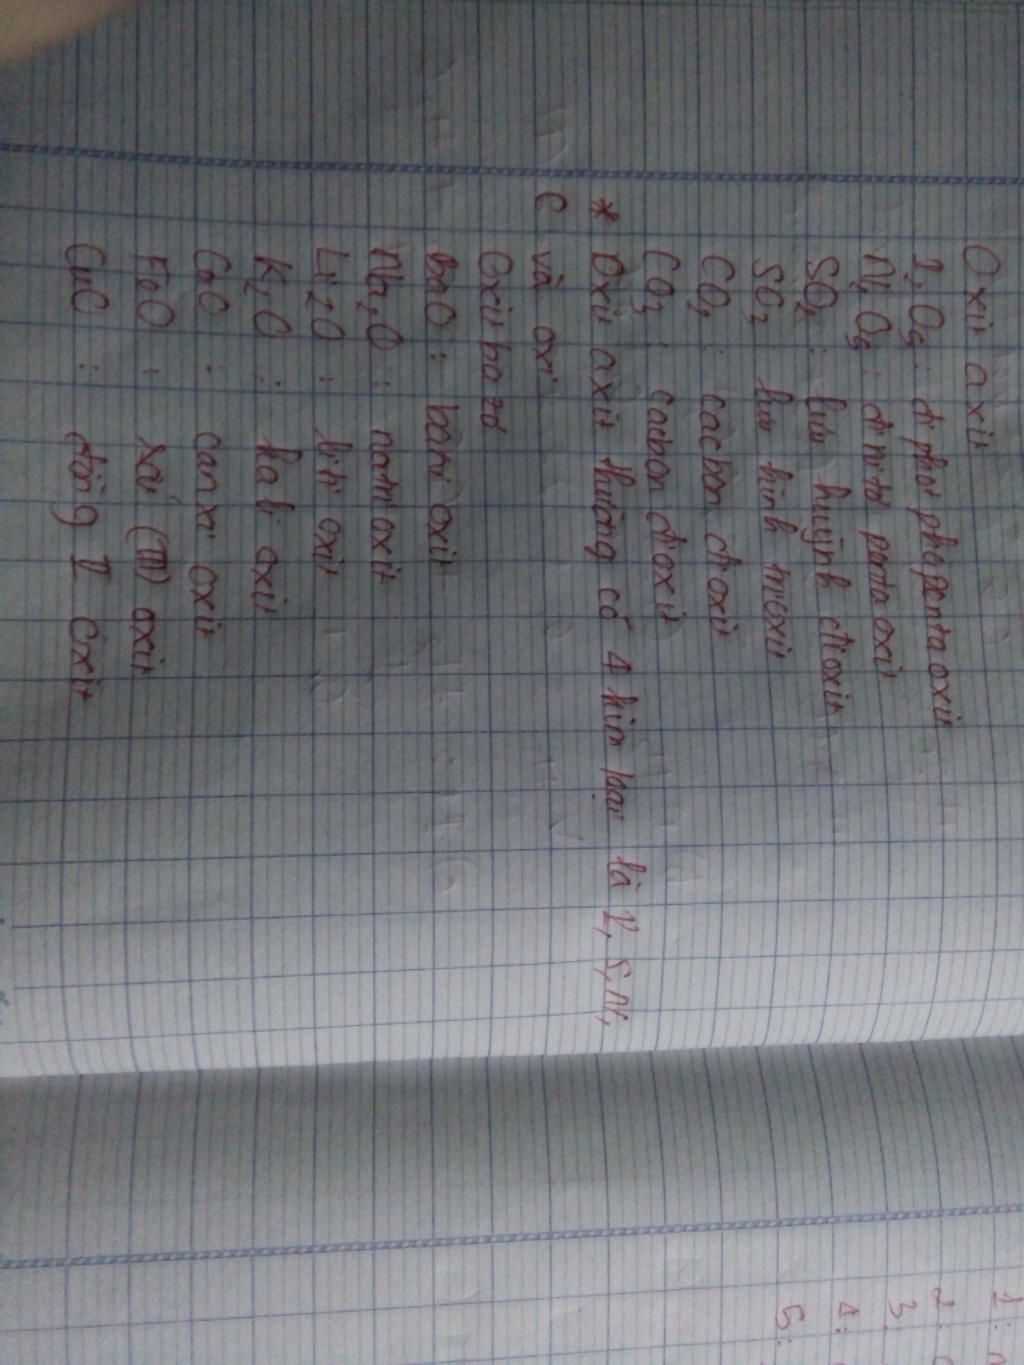 Oxit axit
P2O5: đi phot pho penta oxit
N2O5: đi nitơ penta oxit
SO2: lưu huỳnh đioxit
SO3 lưu hình trioxit
CO2: cacbon đi oxit
CO3: cacbon đioxit
* Oxit axit thường có 4 kim loại là P, S, N,
C và oxi
Oxit bazơ
BaO: bari oxit
Na2O: natri oxit
Li2O: liti oxit
K2O: kali oxit
CaO: canxi oxit
FeO: sắt (III) oxit
CuO: đồng II oxit
1:
2:
3
4:
5: